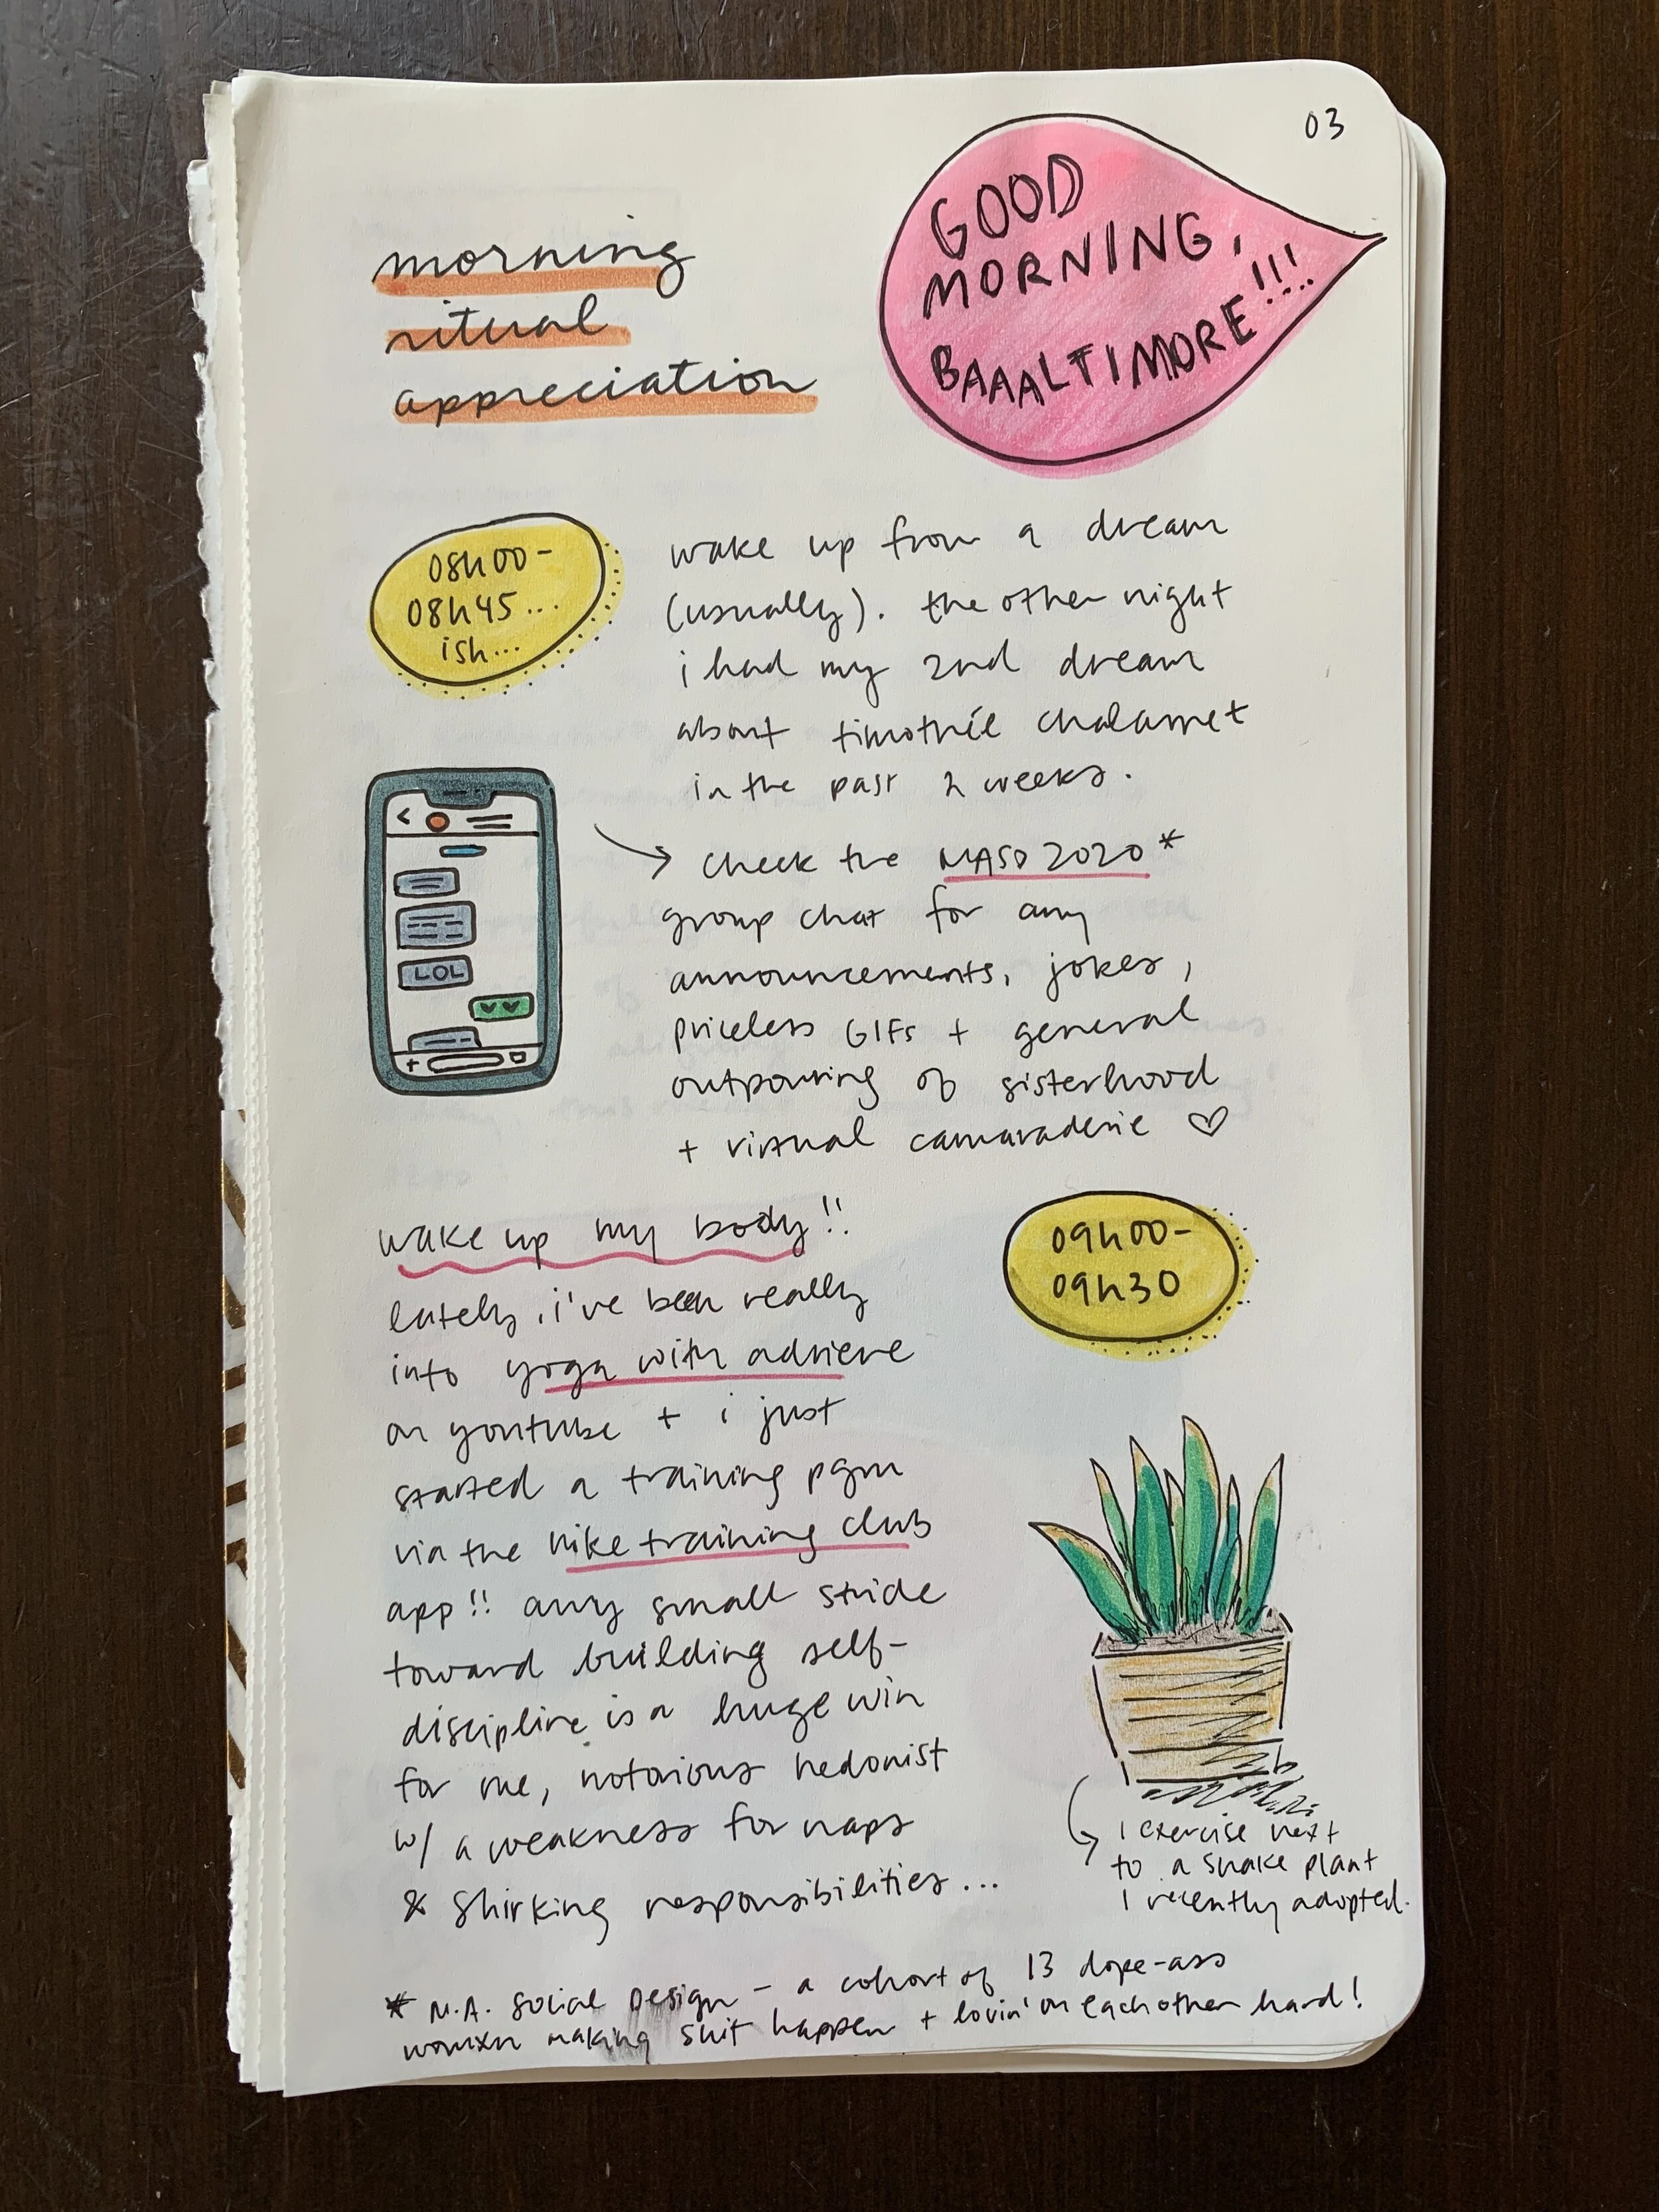 03
GOOD
MORNING,
BAAALTIMORE!!!
morning
ritual
appreciation
08h00-
08h45...
ish...
wake up from a dream
(usually). the other night
i had my 2nd dream
about timothée chalamet
in the past 2 weeks.
LOL
check the MASD 2020*
group chat for any
announcements, jokes,
priceless GIFs + general
outpouring of sisterhood
+ virtual camaraderie ♡
wake up my body!!
09h00-
09h30
lately, i've been really
into yoga with adriene
on youtube + i just
started a training pgm
via the nike training club
app!! any small stride
toward building self-
discipline is a huge win
for me, notorious hedonist
w/ a weakness for naps
& shirking responsibilities...
i exercise next
to a snake plant
i recently adopted.
* M.A. Social Design - a cohort of 13 dope-ass
womxn making shit happen + lovin' on each other hard!